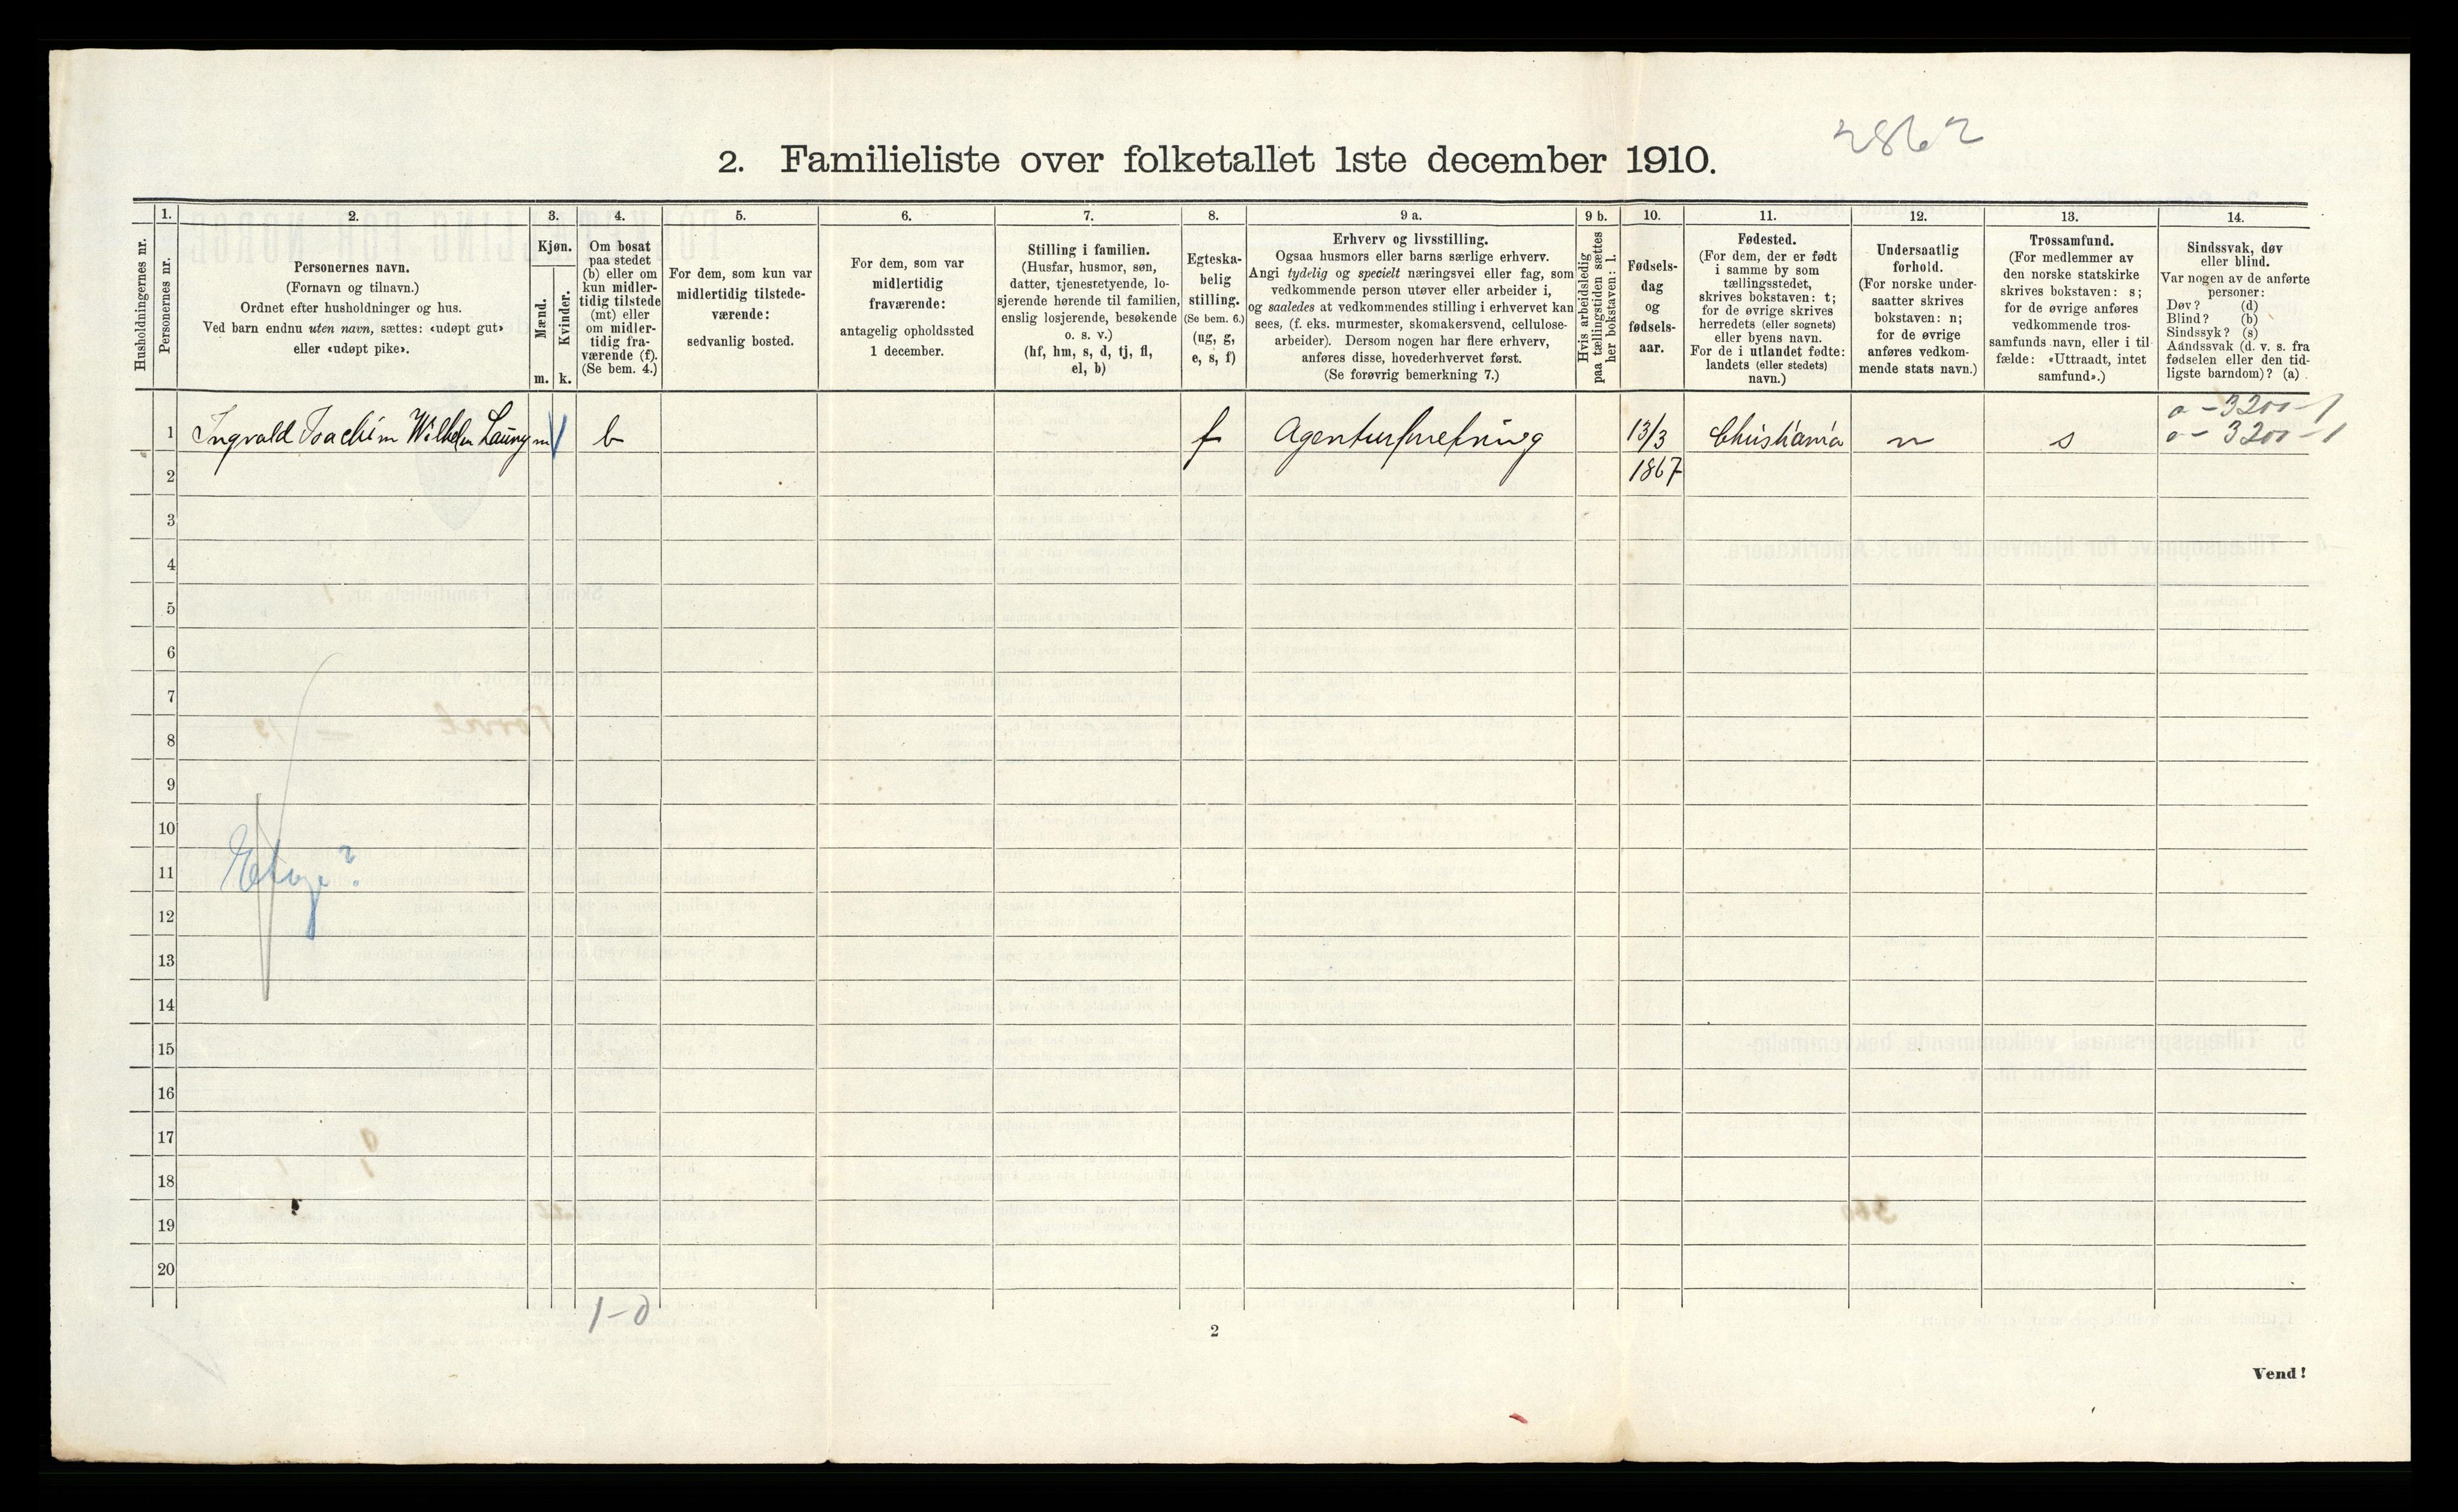 2862
2. Familieliste over folketallet 1ste december 1910.
Husholdningernes nr.
1.
Personernes nr.
2.
Personernes navn.
(Fornavn og tilnavn.)
Ordnet efter husholdninger og hus.
Ved barn endnu uten navn, sættes: «udøpt gut»
eller «udøpt pike».
3.
Kjøn.
Mænd.
m.
Kvinder.
k.
4.
Om bosat
paa stedet
(b) eller om
kun midler-
tidig tilstede
(mt) eller
om midler-
tidig fra-
værende (f).
(Se bem. 4.)
5.
For dem, som kun var
midlertidig tilstede-
værende:
sedvanlig bosted.
6.
For dem, som var
midlertidig
fraværende:
antagelig opholdssted
1 december.
7.
Stilling i familien.
(Husfar, husmor, søn,
datter, tjenestetyende, lo-
sjerende hørende til familien,
enslig losjerende, besøkende
o. s. v.)
(hf, hm, s, d, tj, fl,
el, b)
8.
Egteska-
belig
stilling.
(Se bem. 6.)
(ug, g,
e, s, f)
9 a.
Erhverv og livsstilling.
Ogsaa husmors eller barns særlige erhverv.
Angi tydelig og specielt næringsvei eller fag, som
vedkommende person utøver eller arbeider i,
og saaledes at vedkommendes stilling i erhvervet kan
sees, (f. eks. murmester, skomakersvend, cellulose-
arbeider). Dersom nogen har flere erhverv,
anføres disse, hovederhvervet først.
(Se forøvrig bemerkning 7.)
9 b.
Hvis arbeidsledig
paa tællingstiden sættes
her bokstaven: l.
10.
Fødsels-
dag
og
fødsels-
aar.
11.
Fødested.
(For dem, der er født
i samme by som
tællingsstedet,
skrives bokstaven: t;
for de øvrige skrives
herredets (eller sognets)
eller byens navn.
For de i utlandet fødte:
landets (eller stedets)
navn.)
12.
Undersaatlig
forhold.
(For norske under-
saatter skrives
bokstaven: n;
for de øvrige
anføres vedkom-
mende stats navn.)
13.
Trossamfund.
(For medlemmer av
den norske statskirke
skrives bokstaven: s;
for de øvrige anføres
vedkommende tros-
samfunds navn, eller i til-
fælde: «Uttraadt, intet
samfund».)
14.
Sindssvak, døv
eller blind.
Var nogen av de anførte
personer:
Døv? (d)
Blind? (b)
Sindssyk? (s)
Aandssvak (d. v. s. fra
fødselen eller den tid-
ligste barndom)? (a)
o - 3200 - 1
1 Ingvald Joachim Wilhelm m b f Agenturforretning 13/3 Christiania n s o - 3200 - 1
2 1867
3
4
5
6
7
8
9
10
11 Etage?
12
13
14
15
16
17
18
19
20
1-0
2
Vend!